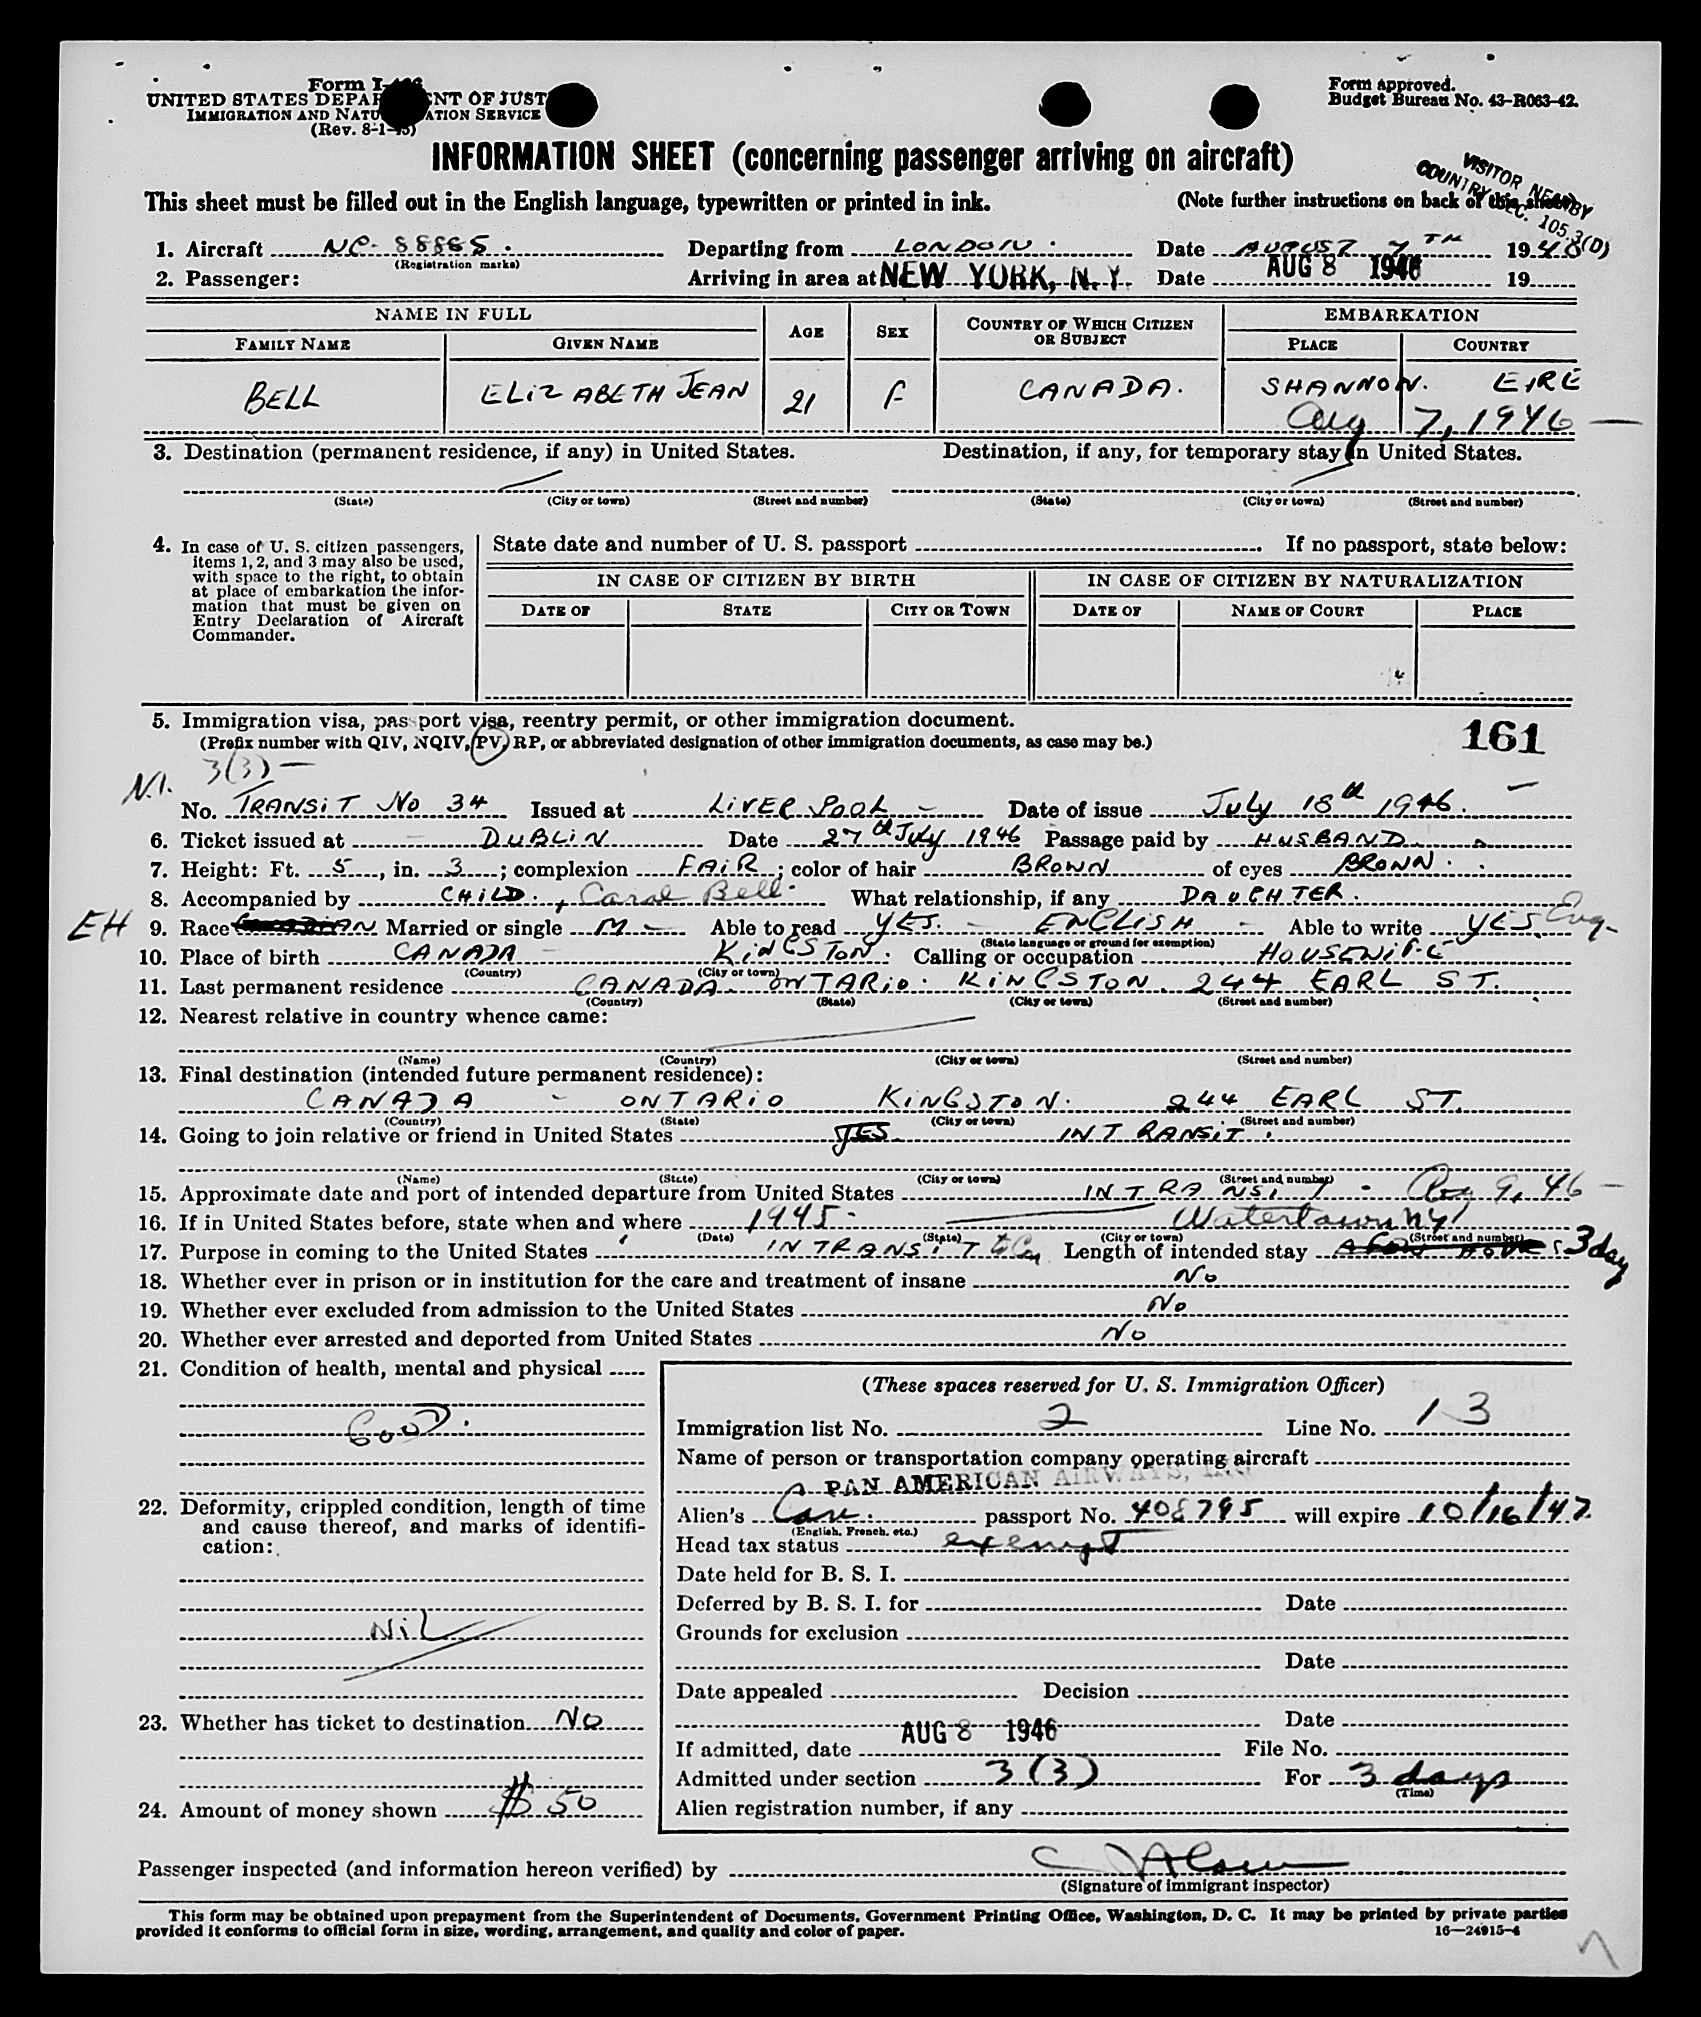 Form I-
UNITED STATES DEPARTMENT OF JUSTICE
IMMIGRATION AND NATURALIZATION SERVICE
(Rev. 8-1-45)
Form approved.
Budget Bureau No. 43-R063-42.
INFORMATION SHEET (concerning passenger arriving on aircraft)
VISITOR NEARBY
COUNTRY SEC. 105.3(D)
This sheet must be filled out in the English language, typewritten or printed in ink. (Note further instructions on back of this sheet)
1. Aircraft NC- 88885. Departing from LONDON. Date AUGUST 7TH 1946
(Registration marks)
2. Passenger: Arriving in area at NEW YORK, N. Y. Date AUG 8 1946 19
NAME IN FULL AGE SEX COUNTRY OF WHICH CITIZEN OR SUBJECT EMBARKATION
FAMILY NAME GIVEN NAME PLACE COUNTRY
BELL ELIZABETH JEAN 21 F CANADA. SHANNON. EIRE
Aug 7, 1946 —
3. Destination (permanent residence, if any) in United States. Destination, if any, for temporary stay in United States.
(State) (City or town) (Street and number) (State) (City or town) (Street and number)
4. In case of U. S. citizen passengers, items 1, 2, and 3 may also be used, with space to the right, to obtain at place of embarkation the information that must be given on Entry Declaration of Aircraft Commander.
State date and number of U. S. passport If no passport, state below:
IN CASE OF CITIZEN BY BIRTH IN CASE OF CITIZEN BY NATURALIZATION
DATE OF STATE CITY OR TOWN DATE OF NAME OF COURT PLACE
5. Immigration visa, passport visa, reentry permit, or other immigration document.
(Prefix number with QIV, NQIV, PV, RP, or abbreviated designation of other immigration documents, as case may be.)
161
N.I. 3(3) —
No. TRANSIT No 34 Issued at LIVERPOOL - Date of issue July 18th 1946.
6. Ticket issued at - DUBLIN Date 27th July 1946 Passage paid by HUSBAND
7. Height: Ft. 5, in. 3; complexion FAIR; color of hair BROWN of eyes BROWN.
8. Accompanied by CHILD., Carol Bell. What relationship, if any DAUGHTER.
EH 9. Race Married or single M - Able to read YES. - ENGLISH - Able to write YES. Eng-
(State language or ground for exemption)
10. Place of birth CANADA - KINGSTON. Calling or occupation HOUSEWIFE
(Country) (City or town)
11. Last permanent residence CANADA. ONTARIO. KINGSTON. 244 EARL ST.
(Country) (State) (City or town) (Street and number)
12. Nearest relative in country whence came:
(Name) (Country) (City or town) (Street and number)
13. Final destination (intended future permanent residence):
CANADA - ONTARIO KINGSTON. 244 EARL ST.
(Country) (State) (City or town) (Street and number)
14. Going to join relative or friend in United States YES INTRANSIT.
(Name) (State) (City or town) (Street and number)
15. Approximate date and port of intended departure from United States INTRANSIT - Aug 9, 46 —
16. If in United States before, state when and where 1945- Watertown NY
(Date) (State) (City or town) (Street and number)
17. Purpose in coming to the United States INTRANSIT to Can Length of intended stay A FEW HOURS 3 day
18. Whether ever in prison or in institution for the care and treatment of insane No
19. Whether ever excluded from admission to the United States No
20. Whether ever arrested and deported from United States No
21. Condition of health, mental and physical
GOOD.
22. Deformity, crippled condition, length of time and cause thereof, and marks of identification:
NiL
23. Whether has ticket to destination No
24. Amount of money shown $50
(These spaces reserved for U. S. Immigration Officer)
Immigration list No. 2 Line No. 13
Name of person or transportation company operating aircraft
PAN AMERICAN AIRWAYS, INC
Alien's Can. passport No. 408795 will expire 10/16/47.
(English, French, etc.)
Head tax status exempt
Date held for B. S. I.
Deferred by B. S. I. for Date
Grounds for exclusion
Date
Date appealed Decision
Date
If admitted, date AUG 8 1946 File No.
Admitted under section 3(3) For 3 days
(Time)
Alien registration number, if any
Passenger inspected (and information hereon verified) by
(Signature of immigrant inspector)
This form may be obtained upon prepayment from the Superintendent of Documents, Government Printing Office, Washington, D. C. It may be printed by private parties
provided it conforms to official form in size, wording, arrangement, and quality and color of paper. 16—24915-4